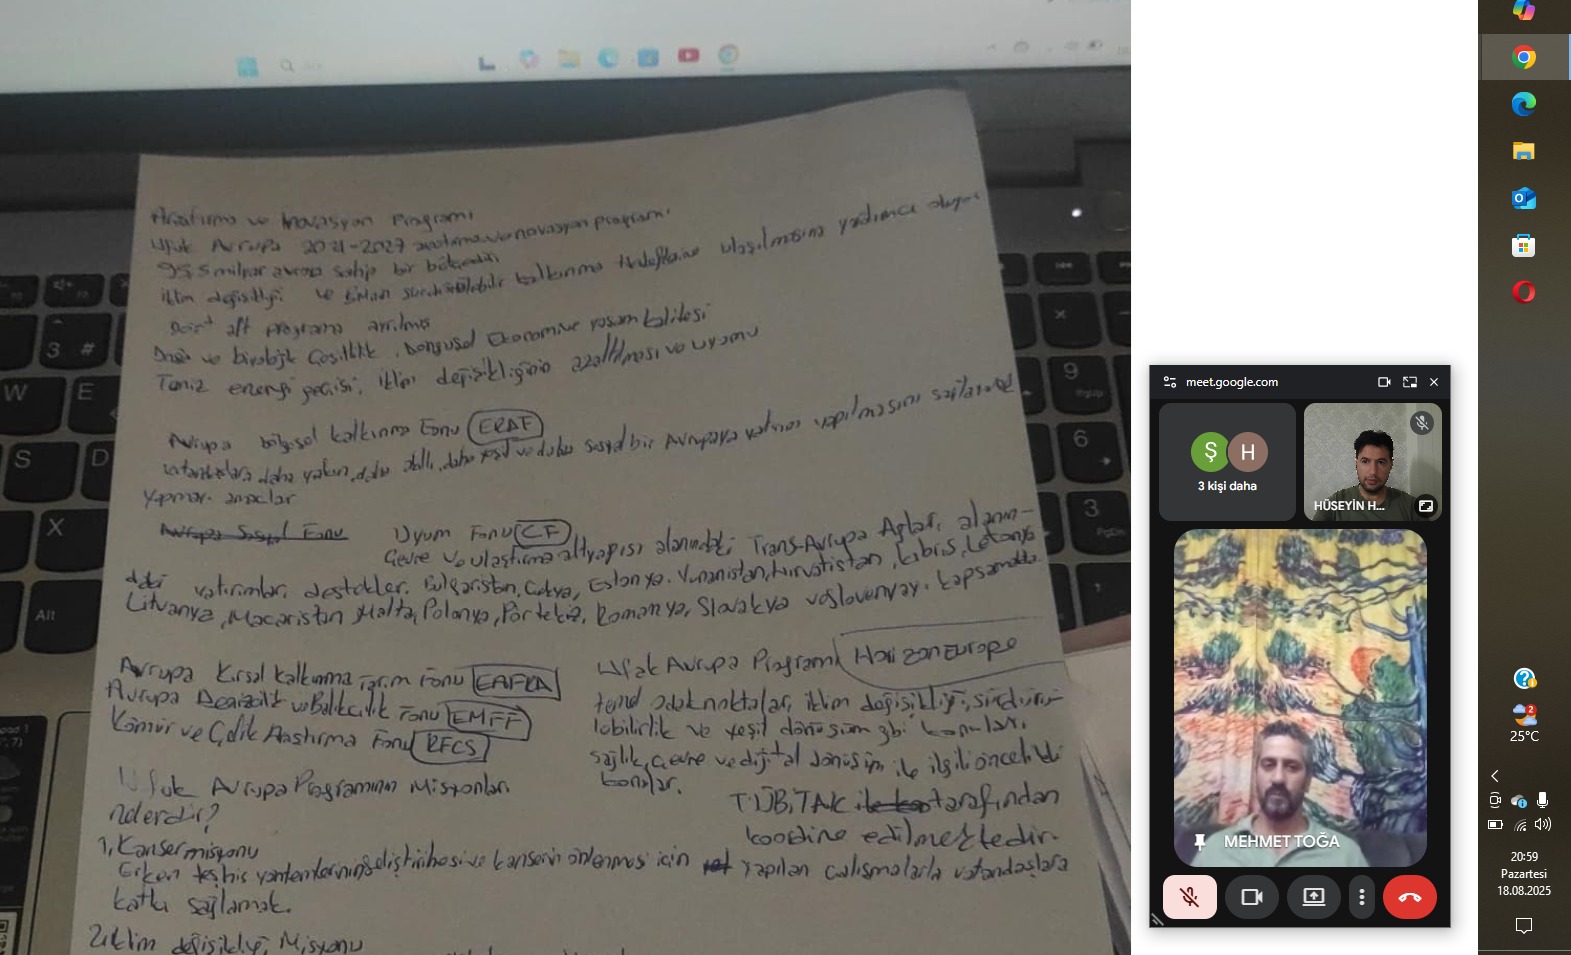 Araştırma ve inovasyon Programı
Ufuk Avrupa 2021-2027 araştırma ve inovasyon programı
95,5 milyar avroya sahip bir bütçedir
iklim değişikliği ve sürdürülebilir kalkınma Hedeflerine ulaşılmasına yardımcı oluyor
Dört alt programa ayrılmış
Doğa ve biyolojik Çeşitlilik, Döngüsel Ekonomi ve yaşam kalitesi
Temiz enerji geçişi, iklim değişikliğinin azaltılması ve uyumu
Avrupa bölgesel kalkınma Fonu ERDF
vatandaşlara daha yakın, daha akıllı, daha yeşil ve daha sosyal bir Avrupaya yatırım yapılmasını sağlamak
yapmayı amaçlar
Avrupa Sosyal Fonu
Uyum Fonu CF
Çevre ve ulaştırma altyapısı alanındaki Trans-Avrupa Ağları alanın-
daki yatırımları destekler. Bulgaristan, Çekya, Estonya, Yunanistan, Hırvatistan, Kıbrıs, Letonya
Litvanya, Macaristan Malta, Polonya, Portekiz, Romanya, Slovakya ve Slovenyayı kapsamakta
Avrupa Kırsal Kalkınma Tarım Fonu EAFRA
Avrupa Denizcilik ve Balıkçılık Fonu EMFF
Kömür ve Çelik Araştırma Fonu RFCS
Ufuk Avrupa Programı Horizon Europe
temel odak noktaları, iklim değişikliği, sürdürü-
lebilirlik ve yeşil dönüşüm gibi konuları,
sağlık, çevre ve dijital dönüşüm ile ilgili öncelikli
konular.
TÜBİTAK tarafından
koordine edilmektedir.
Ufuk Avrupa Programının Misyonları
nelerdir?
1, Kanser misyonu
Erken teşhis yöntemlerinin geliştirilmesi ve kanserin önlenmesi için yapılan çalışmalarla vatandaşlara
katkı sağlamak.
2. iklim değişikliği Misyonu
W
E
S
D
X
Alt
3 #
9
6
3
meet.google.com
Ş
H
3 kişi daha
HÜSEYİN H...
MEHMET TOĞA
2
25°C
20:59
Pazartesi
18.08.2025